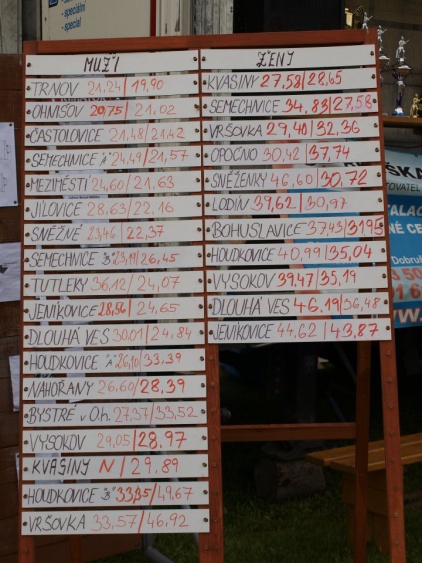 - speciální
- special
MUŽI
TRNOV 21,24/19,90
OHNIŠOV 20,75/21,02
ČASTOLOVICE 21,48/21,42
SEMECHNICE "A" 24,49/21,57
MEZIMĚSTÍ 24,60/21,63
JÍLOVICE 28,63/22,16
SNĚŽNÉ 23,46/22,37
SEMECHNICE "B" 23,19/26,45
TUTLEKY 36,12/24,07
JENÍKOVICE 28,56/24,65
DLOUHÁ VES 30,01/24,84
HOUDKOVICE "A" 26,10/33,39
NAHOŘANY 26,60/28,39
BYSTRÉ v O.h. 27,37/33,52
VYSOKOV 29,05/28,97
KVASINY N/29,89
HOUDKOVICE "B" 33,35/49,67
VRŠOVKA 33,57/46,92
ŽENY
KVASINY 27,58/28,65
SEMECHNICE 34,83/27,58
VRŠOVKA 29,40/32,36
OPOČNO 30,42/37,74
SNĚŽENKY 46,60/30,72
LODÍN 39,62/30,97
BOHUSLAVICE 37,43/31,95
HOUDKOVICE 40,99/35,04
VYSOKOV 39,47/35,19
DLOUHÁ VES 46,19/36,48
JENÍKOVICE 44,62/43,87